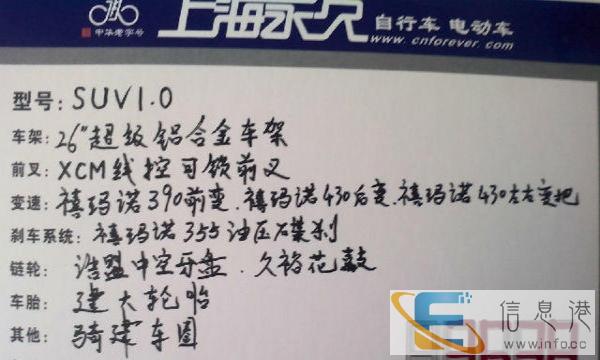 中华老字号
上海永久
自行车 电动车
www.cnforever.com
型号: SUV1.0
车架: 26"超级铝合金车架
前叉: XCM线控可锁前叉
变速: 禧玛诺390前变.禧玛诺430后变.禧玛诺430左右变把
刹车系统: 禧玛诺355油压碟刹
链轮: 浩盟中空牙盘.久裕花鼓
车胎: 建大轮胎
其他: 骑建车圈
信息港
www.info.cc